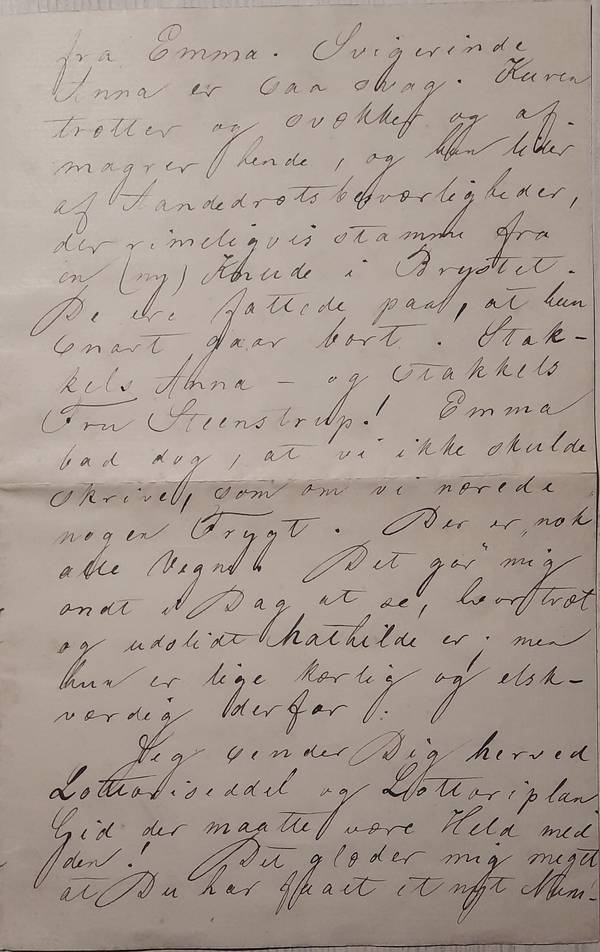 fra Emma. Svigerinde
Anna er saa svag. Kuren
trætter og svækker og af-
magrer hende, og hun lider
af Aandedrætsbesværligheder,
der rimeligvis stamme fra
en (ny) Knude i Brystet.
De ere fattede paa, at hun
snart gaar bort. Stak-
kels Anna – og stakkels
Fru Steenstrup! Emma
bad dog, at vi ikke skulde
skrive, som om vi nærede
nogen Frygt. Der er nok
alle Vegne. Det gør mig
ondt i Dag at se, hvor træt
og udslidt Mathilde er; men
hun er lige kærlig og elsk-
værdig derfor.
Jeg sender Dig herved
Lotteriseddel og Lotteriplan
Gid der maatte være Held med
den! Det glæder mig meget
at Du har faaet et nyt Num-